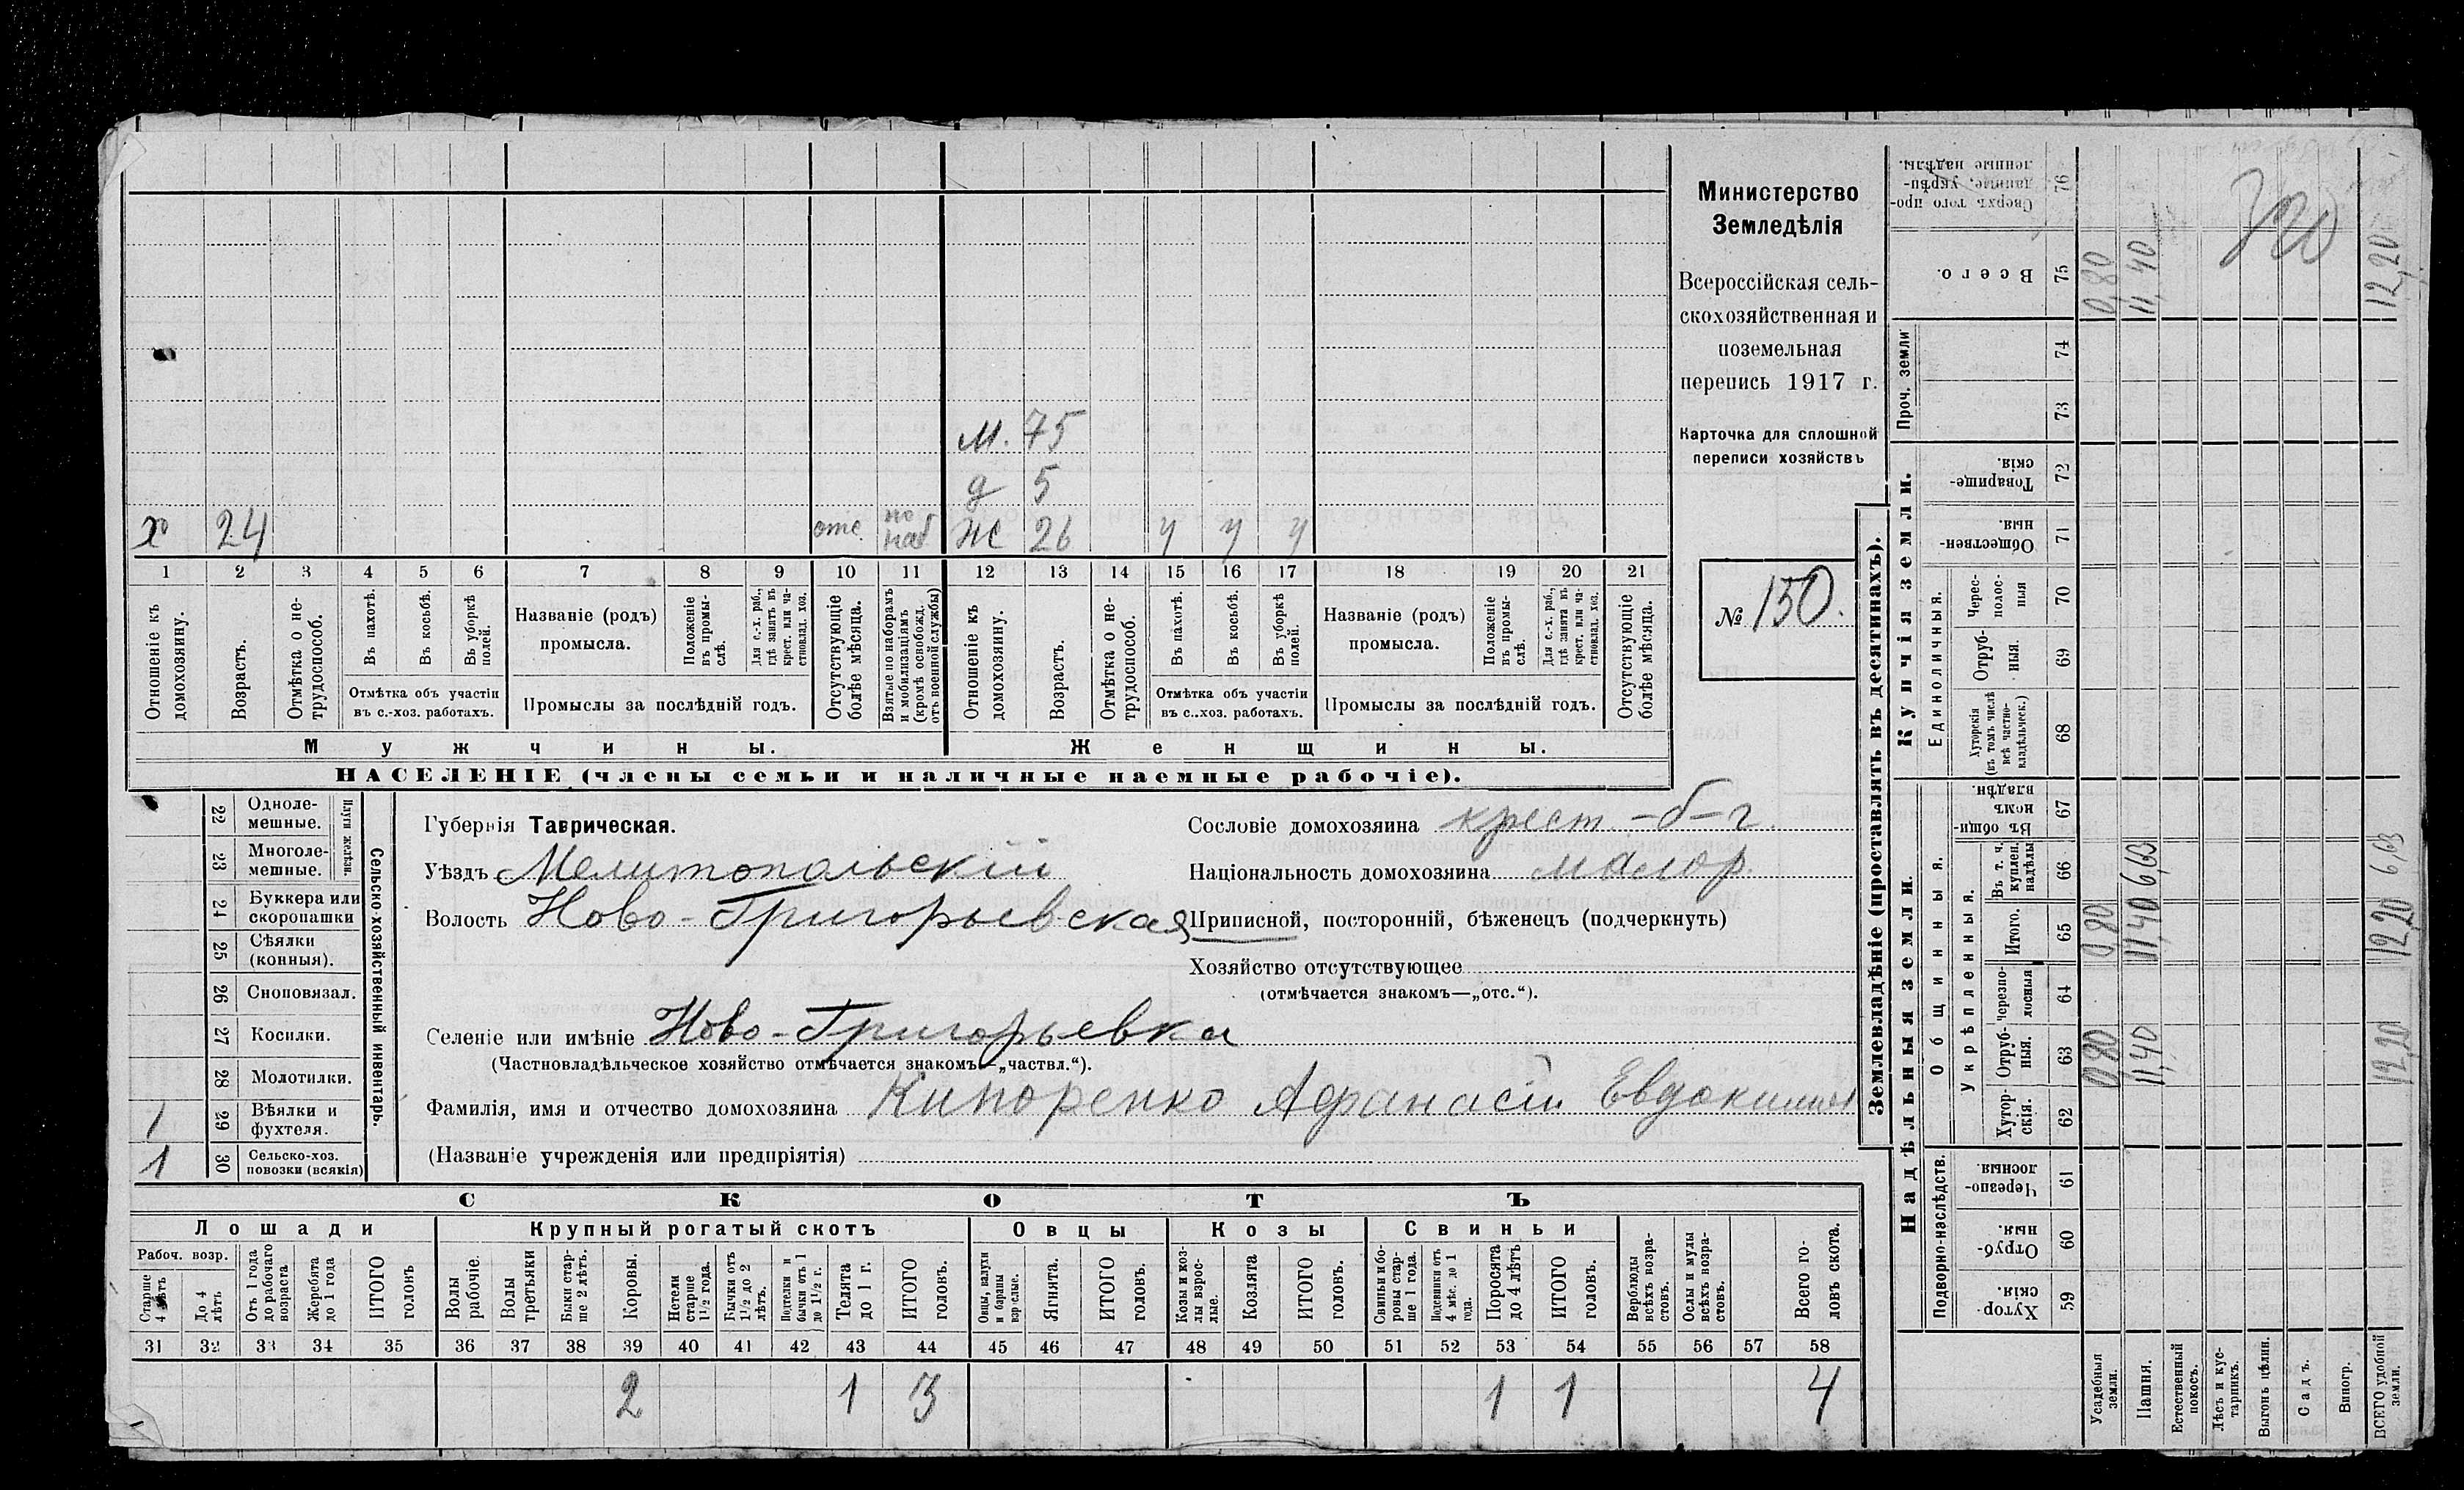 Министерство
Земледѣлія
Всероссійская сель-
скохозяйственная и
поземельная
перепись 1917 г.
Карточка для сплошной
переписи хозяйствъ
№ 150.
м. 75
д 5
х 24 отс. по наб ж 26 у у у
1 2 3 4 5 6 7 8 9 10 11 12 13 14 15 16 17 18 19 20 21
Отношеніе къ домохозяину.
Возрастъ.
Отмѣтка о не-трудоспособ.
Въ пахотѣ.
Въ косьбѣ.
Въ уборкѣ полей.
Отмѣтка объ участіи въ с.-хоз. работахъ.
Названіе (родъ) промысла.
Положеніе въ промы-слѣ.
Для с.-х. раб., гдѣ занятъ въ крест. или ча-стновлад. хоз.
Промыслы за послѣдній годъ.
Отсутствующіе болѣе мѣсяца.
Взятые по наборамъ и мобилизаціямъ (кромѣ освобожд. отъ военной службы)
Отношеніе къ домохозяину.
Возрастъ.
Отмѣтка о не-трудоспособ.
Въ пахотѣ.
Въ косьбѣ.
Въ уборкѣ полей.
Отмѣтка объ участіи въ с.-хоз. работахъ.
Названіе (родъ) промысла.
Положеніе въ промы-слѣ.
Для с.-х. раб., гдѣ занята въ крест. или ча-стновлад. хоз.
Промыслы за послѣдній годъ.
Отсутствующіе болѣе мѣсяца.
Мужчины. Женщины.
НАСЕЛЕНІЕ (члены семьи и наличные наемные рабочіе).
22 Одноле-мешные.
23 Многоле-мешные.
Плуги желѣзн.
24 Буккера или скоропашки
25 Сѣялки (конныя).
26 Сноповязал.
27 Косилки.
28 Молотилки.
1 29 Вѣялки и фухтеля.
1 30 Сельско-хоз. повозки (всякія)
Сельско-хозяйственный инвентарь.
Губернія Таврическая.
Уѣздъ Мелитопольскій
Волость Ново-Григорьевская
Селеніе или имѣніе Ново-Григорьевка
(Частновладѣльческое хозяйство отмѣчается знакомъ—„частвл.“).
Фамилія, имя и отчество домохозяина Кипоренко Афанасій
(Названіе учрежденія или предпріятія)
Сословіе домохозяина крест.-б-г.
Національность домохозяина малор.
Приписной, посторонній, бѣженецъ (подчеркнуть)
Хозяйство отсутствующее
(отмѣчается знакомъ—„отс.“).
СКОТЪ
Лошади Крупный рогатый скотъ Овцы Козы Свиньи
Рабоч. возр.
Старше 4 лѣтъ
До 4 лѣтъ
Отъ 1 года до рабочаго возраста
Жеребята до 1 года
ИТОГО головъ
Волы рабочіе.
Волы третьяки
Быки стар-ше 2 лѣтъ.
Коровы.
Нетели старше 1 1/2 года.
Бычки отъ 1 1/2 до 2 лѣтъ.
Подтелки и бычки отъ 1 до 1 1/2 г.
Телята до 1 г.
ИТОГО головъ.
Овцы, валухи и бараны взрослые.
Ягнята.
ИТОГО головъ.
Козы и коз-лы взрос-лые.
Козлята
ИТОГО головъ.
Свиньи и бо-ровы стар-ше 1 года.
Подсвинки отъ 4 мѣс. до 1 года.
Поросята до 4 лѣтъ
ИТОГО головъ.
Верблюды всѣхъ возра-стовъ.
Ослы и мулы всѣхъ возра-стовъ.
Всего го-ловъ скота.
31 32 33 34 35 36 37 38 39 40 41 42 43 44 45 46 47 48 49 50 51 52 53 54 55 56 57 58
2 1 3 1 1 4
Землевладѣніе (проставлять въ десятинахъ).
Надѣльныя земли.
Купчія земли.
Проч. земли
Подворно-наслѣдств.
Общинныя.
Укрѣпленныя.
Единоличныя.
Хутор-скія. 59
Отруб-ныя. 60
Черезпо-лосныя. 61
Хутор-скія. 62
Отруб-ныя. 63
Черезпо-лосныя 64
Итого. 65
Въ т. ч. куплен. надѣлы 66
Въ общин-номъ владѣн. 67
Хуторскія (въ томъ числѣ всѣ частно-владѣльческ.) 68
Отруб-ныя. 69
Черес-полос-ныя 70
Обществен-ныя. 71
Товарище-скія. 72
73
74
Всего. 75
Сверхъ того про-данные, укрѣп-ленные надѣлы. 76
Усадебныя земли. 0,80 0,80 0,80
Пашня. 11,40 11,40 6,63 11,40
Естественный покосъ.
Лѣсъ и кус-тарникъ.
Выгонъ цѣлин.
Садъ.
Виногр.
ВСЕГО удобной земли. 12,20 12,20 6,63 12,20